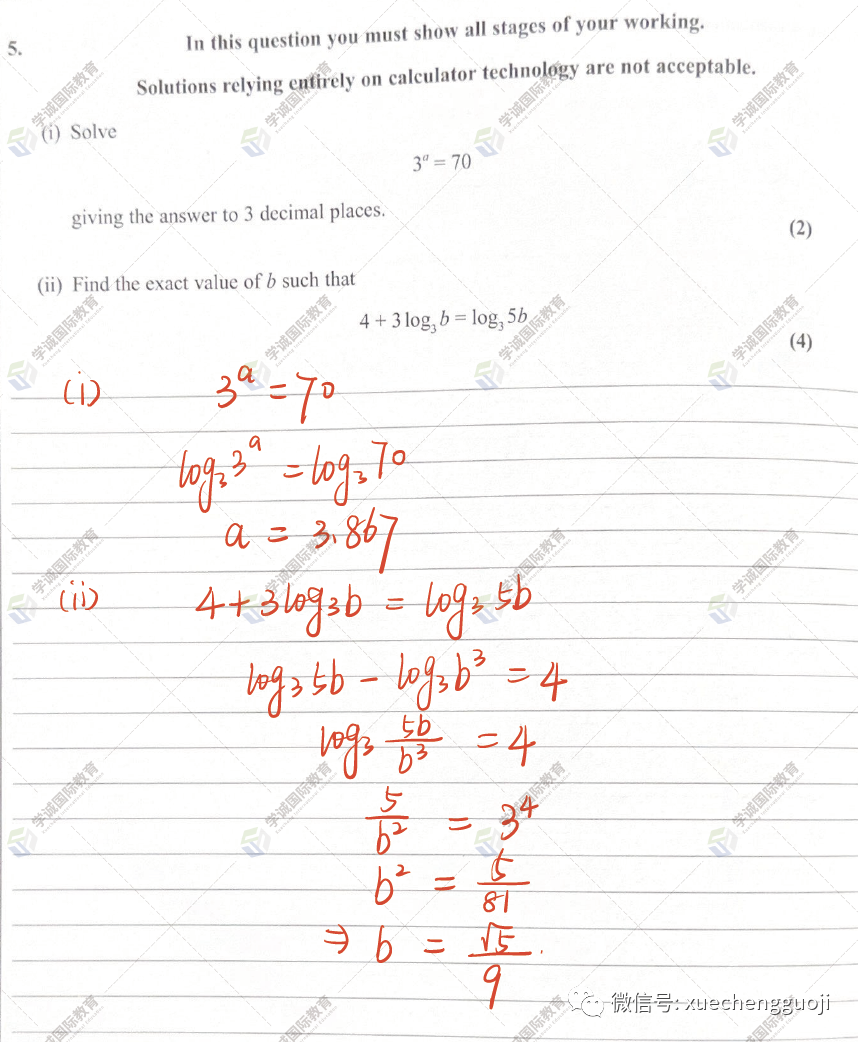 5.
In this question you must show all stages of your working.
Solutions relying entirely on calculator technology are not acceptable.
(i) Solve
3ᵃ = 70
giving the answer to 3 decimal places.
(2)
(ii) Find the exact value of b such that
4 + 3 log₃ b = log₃ 5b
(4)
(i) 3ᵃ = 70
log₃ 3ᵃ = log₃ 70
a = 3.867
(ii) 4 + 3 log₃ b = log₃ 5b
log₃ 5b − log₃ b³ = 4
log₃ 5b/b³ = 4
5/b² = 3⁴
b² = 5/81
⇒ b = √5/9.
微信号: xuechengguoji
学诚国际教育